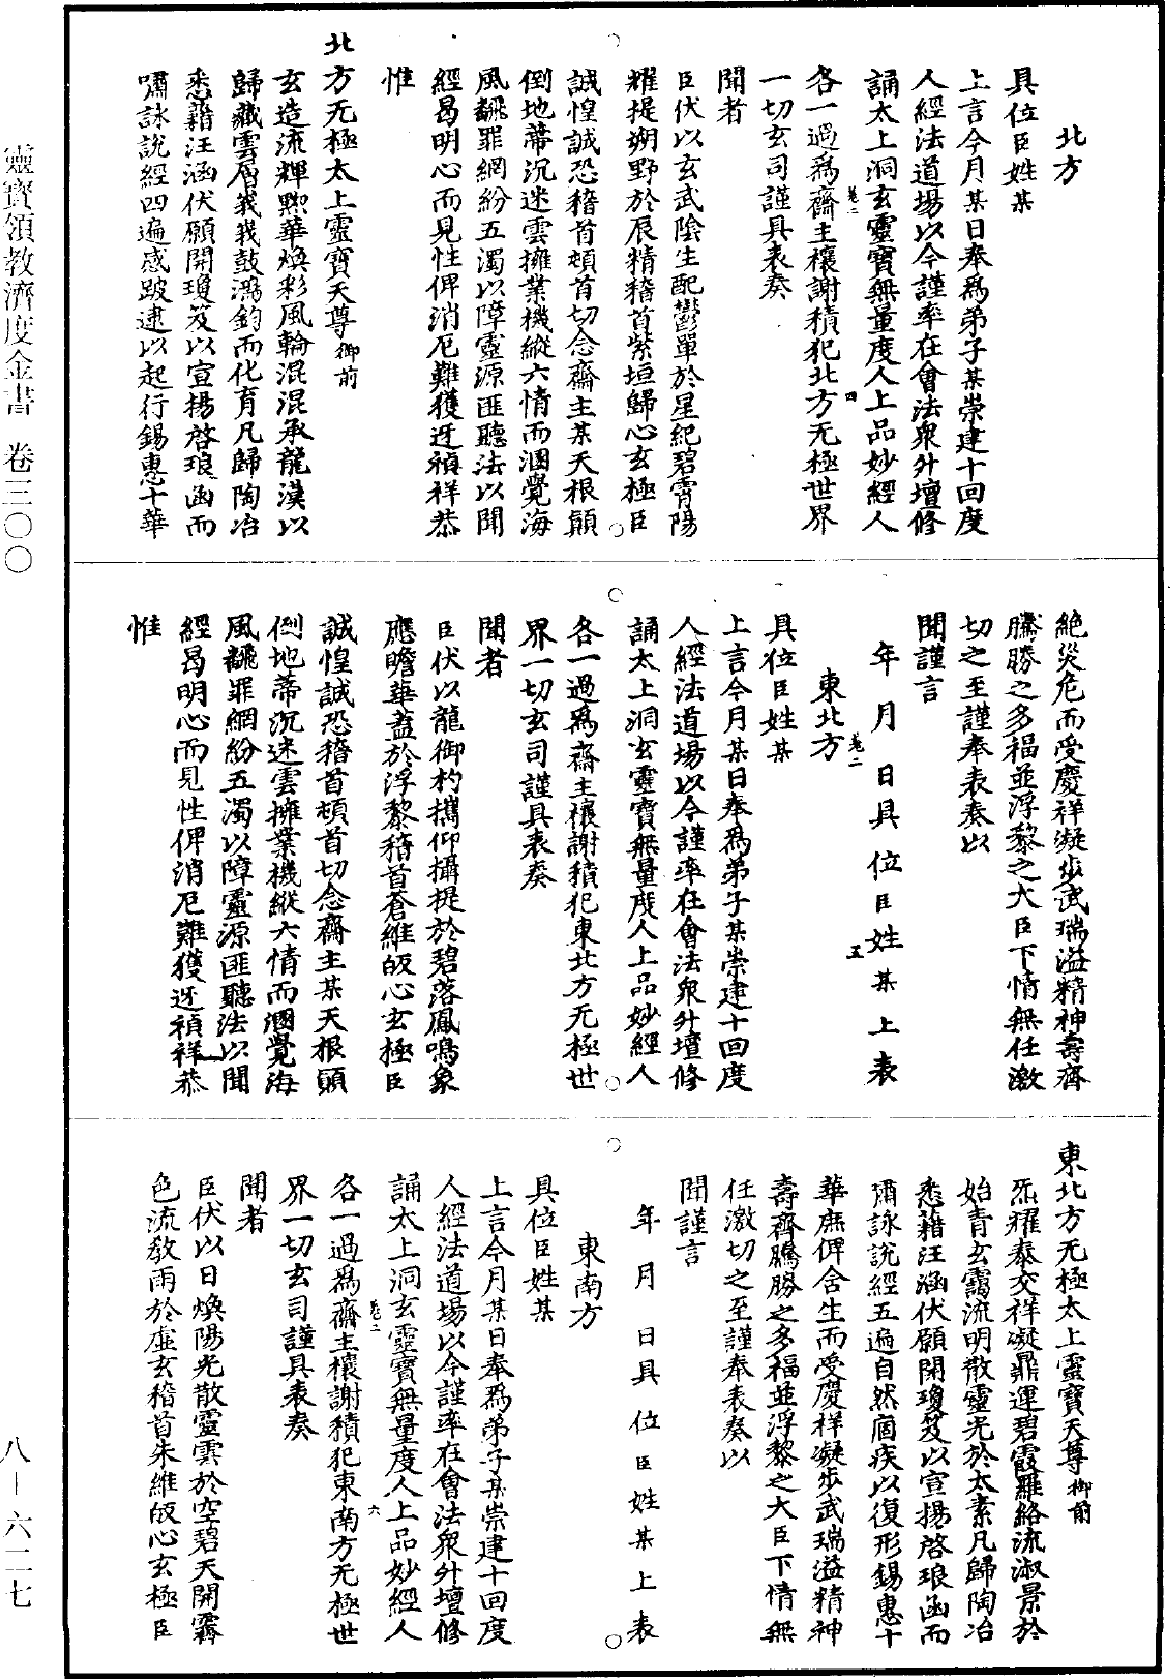 北方
具位臣姓某
上言今月某日奉爲弟子某崇建十回度
人經法道場以今謹率在會法衆外壇修
誦太上洞玄靈寶無量度人上品妙經人
卷二 四
各一過爲齋主禳謝積犯北方无極世界
一切玄司謹具表奏
聞者
臣伏以玄武陰生配鬱單於星紀碧霄陽
耀提朔野於辰精稽首紫垣歸心玄極臣
誠惶誠恐稽首頓首切念齋主某天根顚
倒地蒂沉迷雲擁業機縱六情而溷覺海
風飜罪網紛五濁以障靈源匪聽法以聞
經曷明心而見性俾消厄難獲迓禎祥恭
惟
北方无極太上靈寶天尊御前
玄造流輝黙華煥彩風輪混混承龍漢以
歸藏雲層峩峩鼓鴻鈞而化育凡歸陶冶
悉藉汪涵伏願開瓊笈以宣揚啓琅函而
嘯詠說經四遍感跛逮以起行錫惠十華
絶災危而受慶祥凝步武瑞溢精神壽齊
騰勝之多福並浮黎之大臣下情無任激
切之至謹奉表奏以
聞謹言
年月日具位臣姓某上表
卷二 五
東北方
具位臣姓某
上言今月某日奉爲弟子某崇建十回度
人經法道場以今謹率在會法衆外壇修
誦太上洞玄靈寶無量度人上品妙經人
各一過爲齋主禳謝積犯東北方无極世
界一切玄司謹具表奏
聞者
臣伏以龍御杓攜仰攝提於碧落鳳鳴象
應瞻華蓋於浮黎稽首蒼維皈心玄極臣
誠惶誠恐稽首頓首切念齋主某天根顚
倒地蒂沉迷雲擁業機縱六情而溷覺海
風飜罪網紛五濁以障靈源匪聽法以聞
經曷明心而見性俾消厄難獲迓禎祥恭
惟
東北方无極太上靈寶天尊御前
炁耀泰交祥凝鼎運碧霞羅絡流淑景於
始青玄靄流明散靈光於太素凡歸陶冶
悉藉汪涵伏願開瓊笈以宣揚啓琅函而
嘯詠說經五遍自然痼疾以復形錫惠十
華庶俾含生而受慶祥凝步武瑞溢精神
壽齊騰勝之多福並浮黎之大臣下情無
任激切之至謹奉表奏以
聞謹言
年月日具位臣姓某上表
東南方
具位臣姓某
上言今月某日奉爲弟子某崇建十回度
人經法道場以今謹率在會法衆外壇修
誦太上洞玄靈寶無量度人上品妙經人
卷二 六
各一過爲齋主禳謝積犯東南方无極世
界一切玄司謹具表奏
聞者
臣伏以日煥陽光散靈雲於空碧天開霽
色流教雨於虛玄稽首朱維皈心玄極臣
靈寶領教濟度金書 卷三〇〇
八－六二七